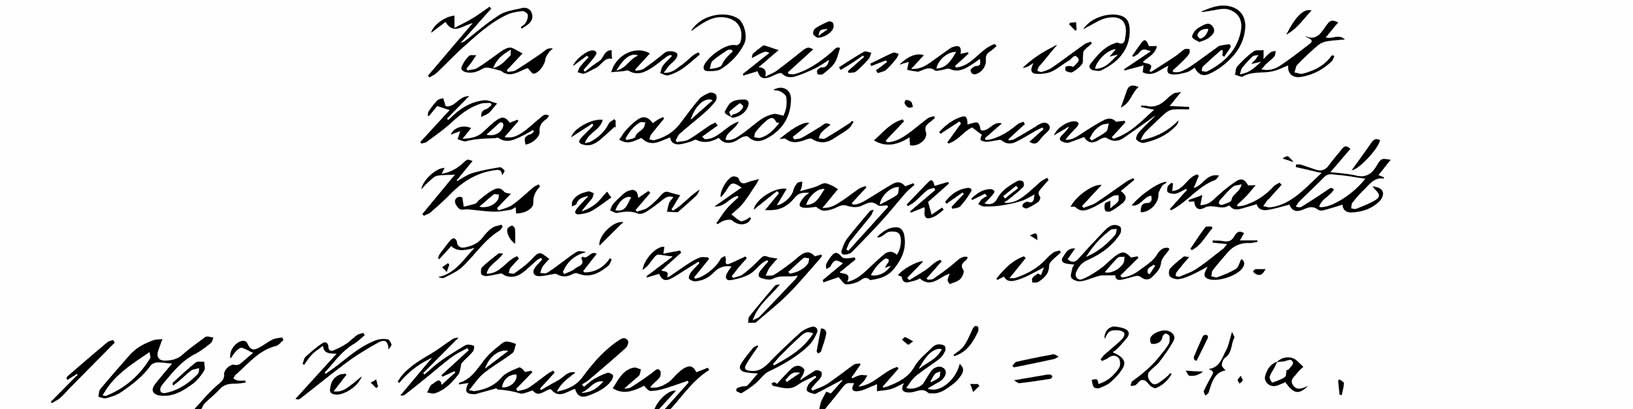 Kas var dzismas isdzidát
Kas valůdu isrunát
Kas var zvaigznes isskaitít
Jùrá zvirgzdus islasít.
1067 K. Blauberg Sèrpilé. = 324. a.